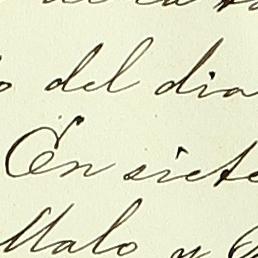 del dia
En siete
Malo y